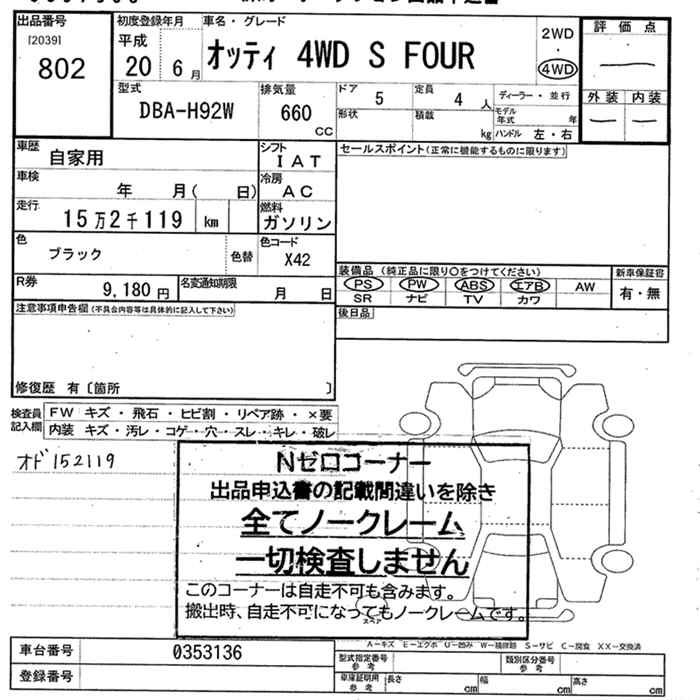 出品番号
[2039]
802
初度登録年月
平成
20 6月
車名・グレード
オッティ 4WD S FOUR
2WD
・
4WD
評価点
外装 内装
型式
DBA-H92W
排気量
660
CC
ドア
5
定員
4 人
形状
積載
kg
ディーラー・並行
モデル年式 年
ハンドル 左・右
車歴
自家用
シフト
IAT
セールスポイント(正常に機能するものに限ります)
車検
年 月( 日)
冷房
AC
走行
15万2千119 km
燃料
ガソリン
色
ブラック
色替
色コード
X42
R券
9,180円
名変通知期限
月 日
装備品(純正品に限り○をつけてください)
PS PW ABS エアB AW
SR ナビ TV カワ
新車保証書
有・無
注意事項申告欄(不具合内容等は具体的に記入して下さい)
後日品
修復歴 有〔箇所 〕
検査員記入欄
FW キズ・飛石・ヒビ割・リペア跡・×要
内装 キズ・汚レ・コゲ・穴・スレ・キレ・破レ
オド152119
Nゼロコーナー
出品申込書の記載間違いを除き
全てノークレーム
一切検査しません
このコーナーは自走不可も含みます。
搬出時、自走不可になってもノークレームです。
スペア
A-キズ E-エクボ U-凹み W-補修跡 S-サビ C-腐食 XX-交換済
車台番号
0353136
登録番号
型式指定番号
参考
類別区分番号
参考
車庫証明用
参考
長さ cm
幅 cm
高さ cm